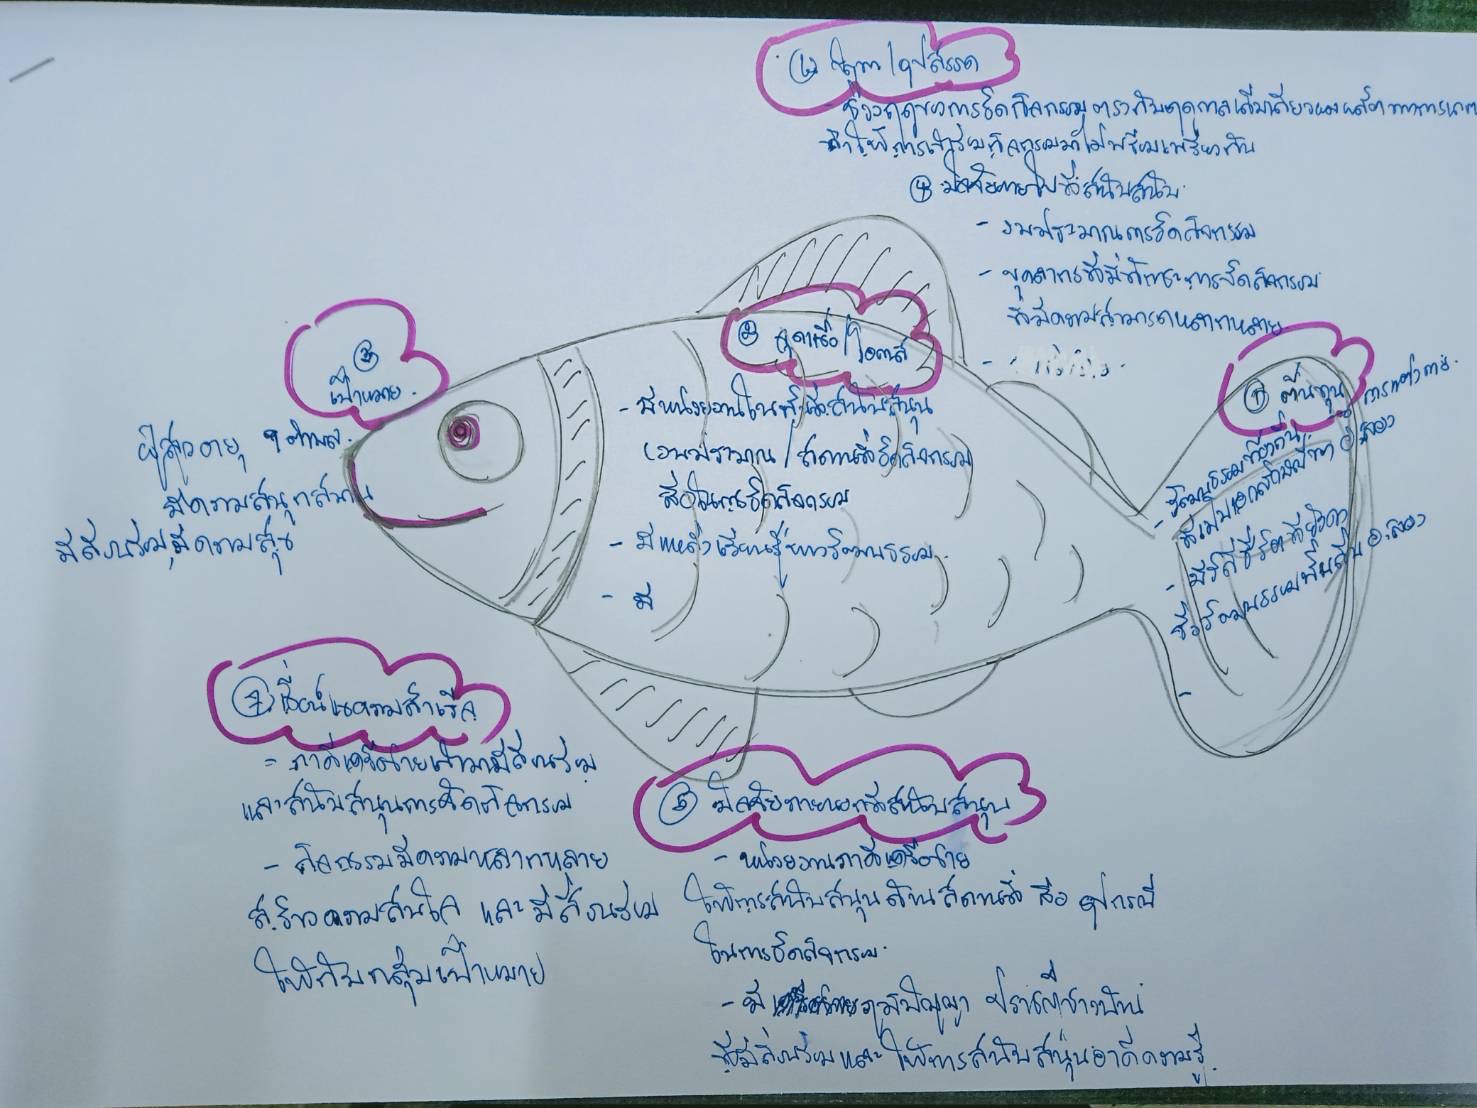 ⑥ ปัญหา/อุปสรรค
ช่วงฤดูของการจัดกิจกรรมตรงกับฤดูกาลเก็บเกี่ยว
ทำให้การเข้าร่วมกิจกรรมไม่พร้อมเพรียงกัน
④ ปัจจัยภายในที่สนับสนุน
- งบประมาณการจัดกิจกรรม
- บุคลากรที่มีทักษะการจัดกิจกรรม
ที่มีความสามารถหลากหลาย
-
③
เป้าหมาย
ผู้สูงอายุ ๆ ตำบล
มีความสนุกสนาน
มีส่วนร่วม มีความสุข
② จุดแข็ง/โอกาส
- มีหน่วยงานในพื้นที่สนับสนุน
งบประมาณ/สถานที่จัดกิจกรรม
สื่อในการจัดกิจกรรม
- มีแหล่งเรียนรู้ทางวัฒนธรรม
- มี
① ต้นทุน
- วัฒนธรรมท้องถิ่น การแต่งกาย
ที่เป็นเอกลักษณ์
- มีวิถีชีวิต
-
⑦ เงื่อนไขความสำเร็จ
- ภาคีเครือข่ายเข้ามามีส่วนร่วม
และสนับสนุนการจัดกิจกรรม
- กิจกรรมมีความหลากหลาย
สร้างความสนใจ และมีส่วนร่วม
ให้กับกลุ่มเป้าหมาย
⑤ ปัจจัยภายนอกที่สนับสนุน
- หน่วยงานภาคีเครือข่าย
ให้การสนับสนุนด้านสถานที่ สื่อ อุปกรณ์
ในการจัดกิจกรรม
- มี ภูมิปัญญา ปราชญ์ชาวบ้าน
ที่มีส่วนร่วมและให้การสนับสนุนองค์ความรู้